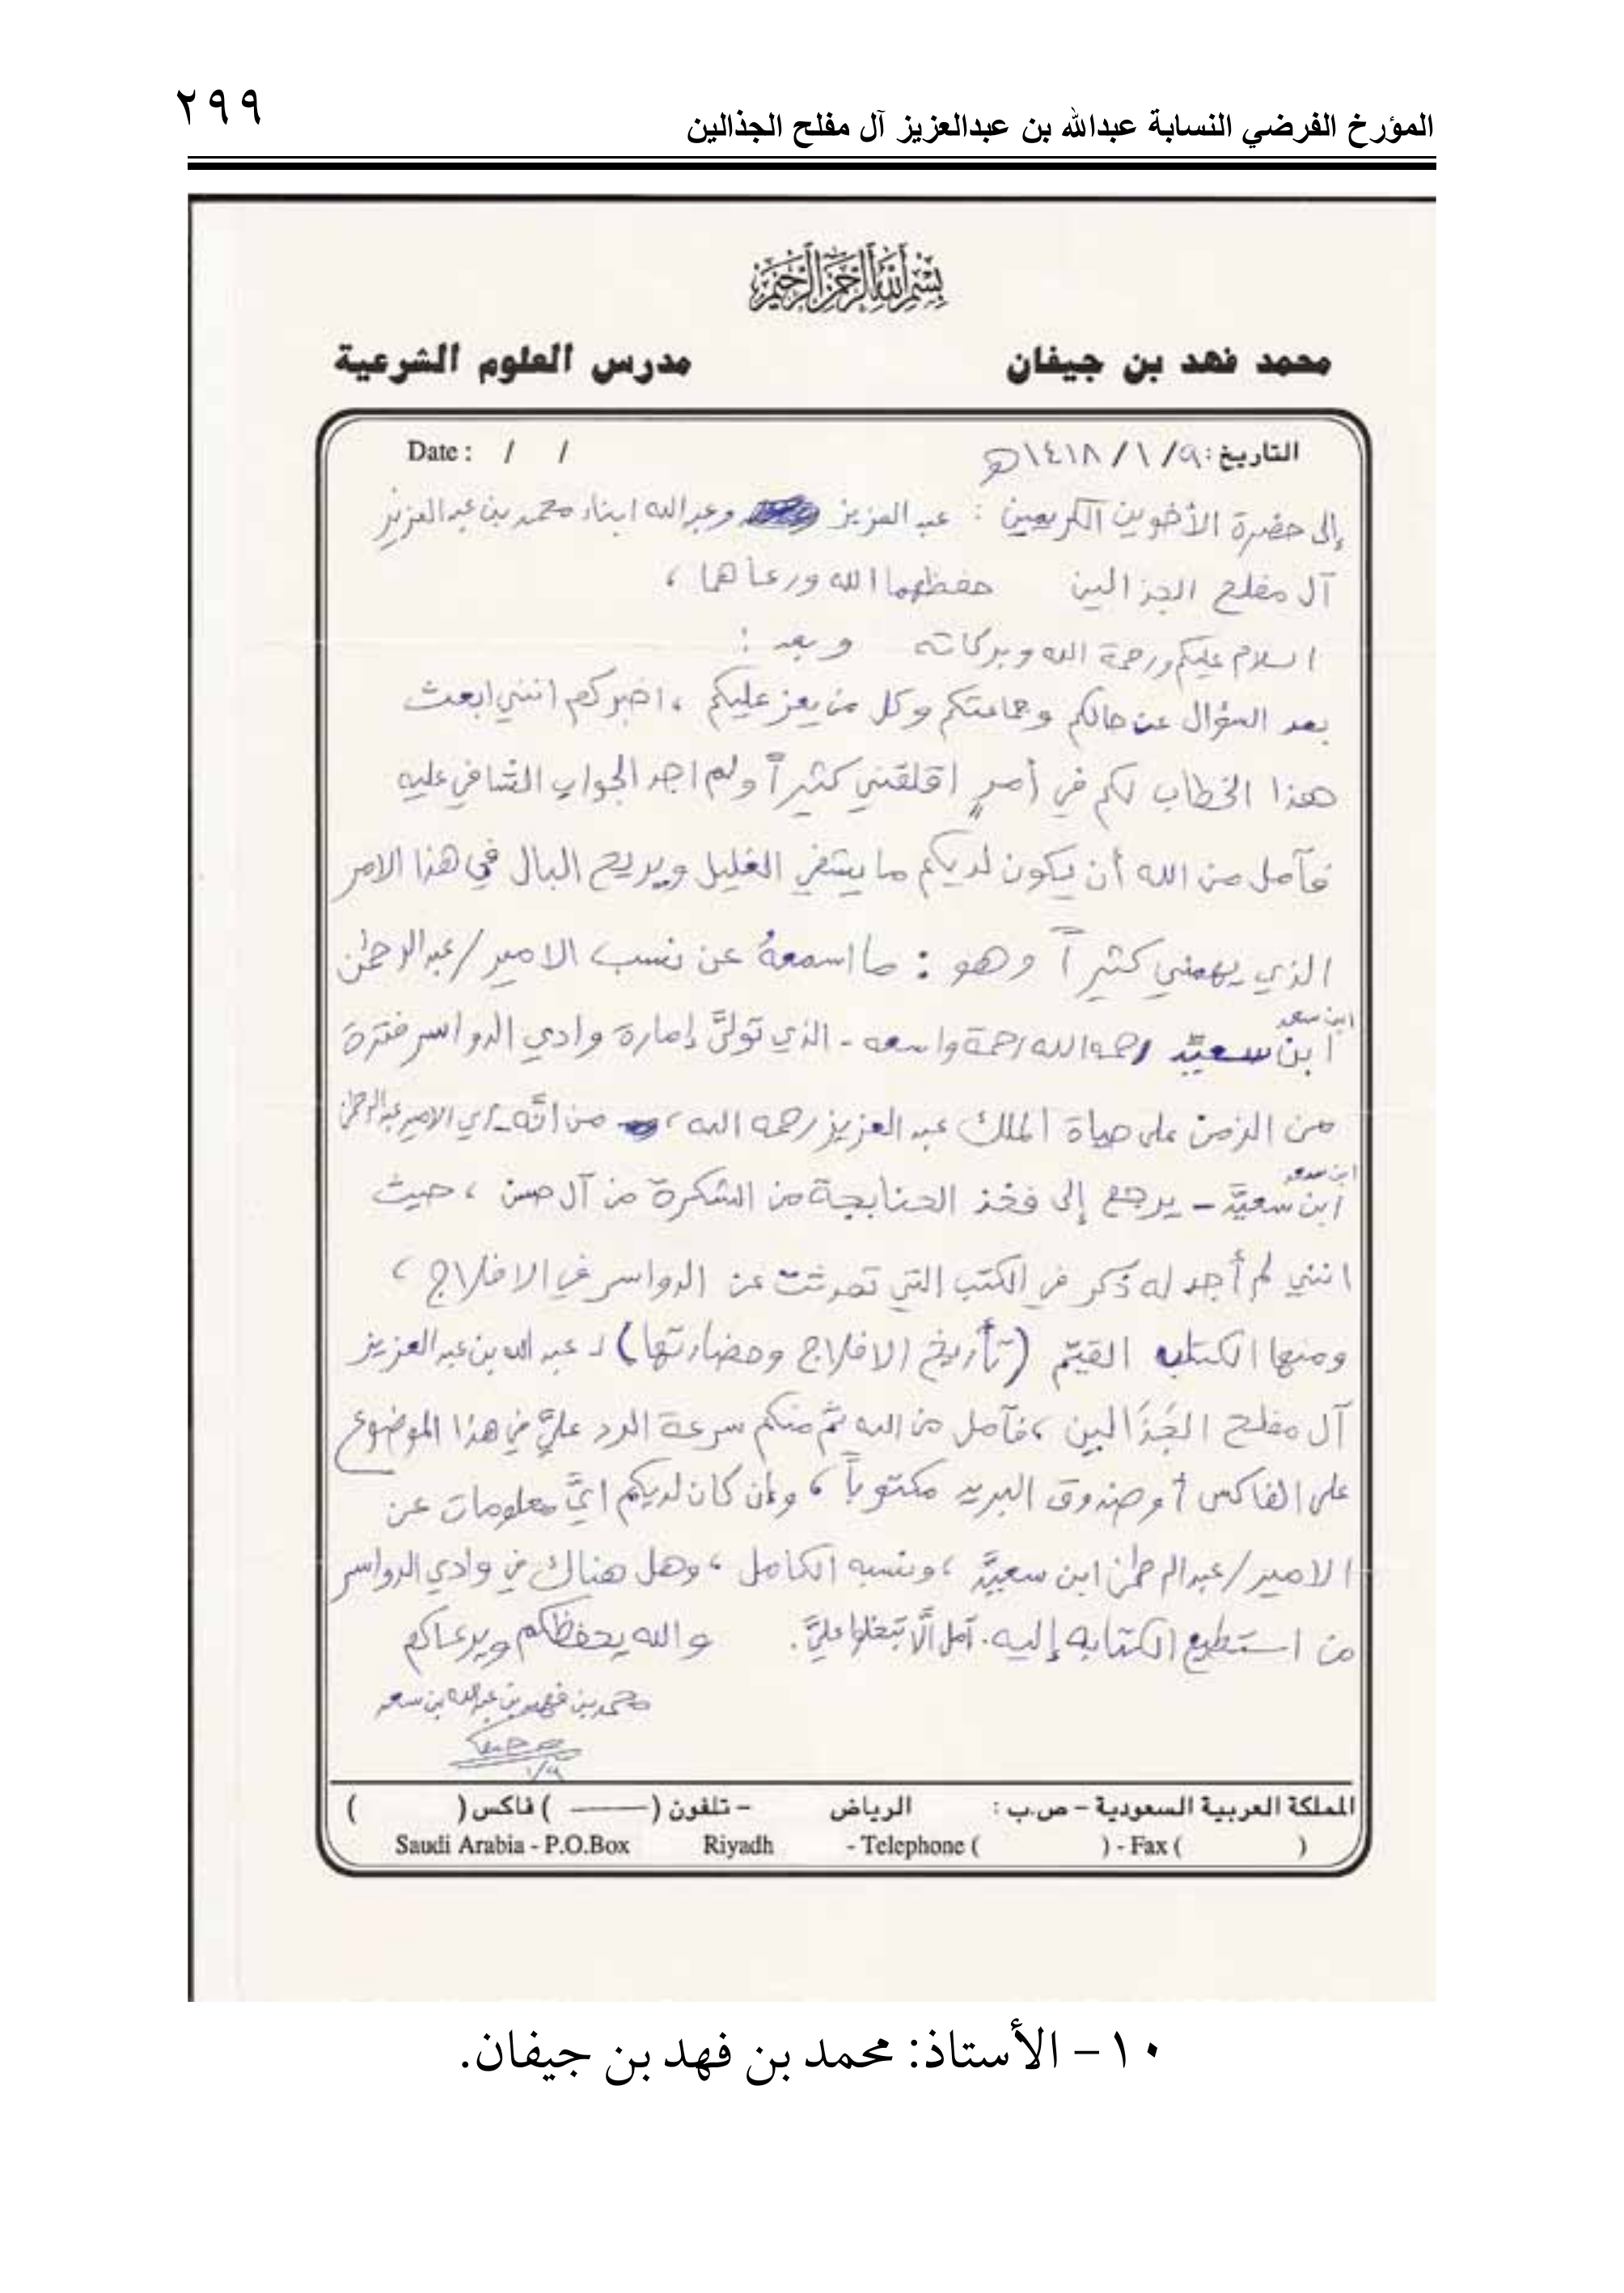 المؤرخ الفرضي النسابة عبدالله بن عبدالعزيز آل مفلح الجذالين
٢٩٩
بسم الله الرحمن الرحيم
محمد فهد بن جيفان
مدرس العلوم الشرعية
التاريخ: ٩ / ١ / ١٤١٨هـ
Date : / /
إلى حضرة الأخوين الكريمين : عبد العزيز وعبد الله ابناء محمد بن عبد العزيز
آل مفلح الجذالين حفظهما الله ورعاهما ،
السلام عليكم ورحمة الله وبركاته وبعد :
بعد السؤال عن حالكم وجماعتكم وكل من يعز عليكم ، اخبركم انني ابعث
هذا الخطاب لكم في أمرٍ اقلقني كثيراً ولم اجد الجواب الشافي عليه
فآمل من الله أن يكون لديكم ما يشفي الغليل ويريح البال في هذا الامر
الذي يهمني كثيراً وهو : ما اسمعهُ عن نسب الامير / عبد الرحمن
ابن سعد
ابن سعيِّد رحمه الله رحمة واسعه - الذي تولَّى إمارة وادي الدواسر فترة
من الزمن على حياة الملك عبد العزيز رحمه الله ، من انَّه - أي الامير عبد الرحمن
ابن سعد
ابن سعيِّد - يرجع إلى فخذ الحنابجة من الشكرة من آل حسن ، حيث
انني لم أجد له ذكر في الكتب التي تحدثت عن الدواسر في الافلاج ،
ومنها الكتاب القيّم ( تأريخ الافلاج وحضارتها ) لـ عبد الله بن عبد العزيز
آل مفلح الجَذَالين ، فآمل من الله ثمَّ منكم سرعة الرد عليَّ في هذا الموضوع
على الفاكس أو صندوق البريد مكتوباً ، وإن كان لديكم ايَّ معلومات عن
الامير / عبد الرحمن ابن سعيِّد ، ونسبه الكامل ، وهل هناك في وادي الدواسر
من استطيع الكتابه إليه . آمل ألَّا تبخلوا عليَّ . والله يحفظكم ويرعاكم
محمد بن فهد بن عبد الله بن سعد
١/٩
المملكة العربية السعودية – ص.ب : الرياض – تلفون ( ——— ) فاكس ( )
Saudi Arabia - P.O.Box Riyadh - Telephone ( ) - Fax ( )
١٠ – الأستاذ: محمد بن فهد بن جيفان.